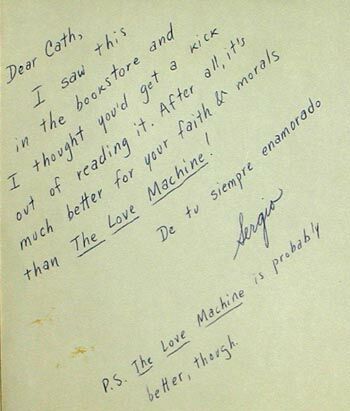 Dear Cath,
I saw this
in the bookstore and
I thought you'd get a kick
out of reading it. After all, it's
much better for your faith & morals
than The Love Machine!
De tu siempre enamorado
Sergio
P.S. The Love Machine is probably
better, though.